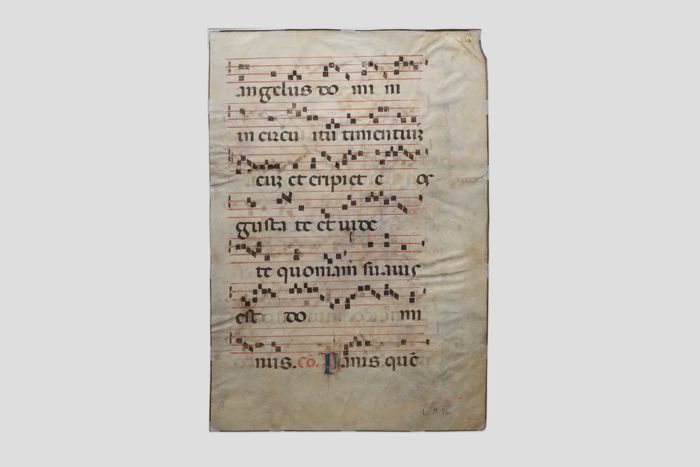 angelus do mi ni
in circu itu timentiuꝫ
euꝫ et eripiet e os
gusta te et uide
te quoniam suauis
est do mi
nus. cō. Panis quē